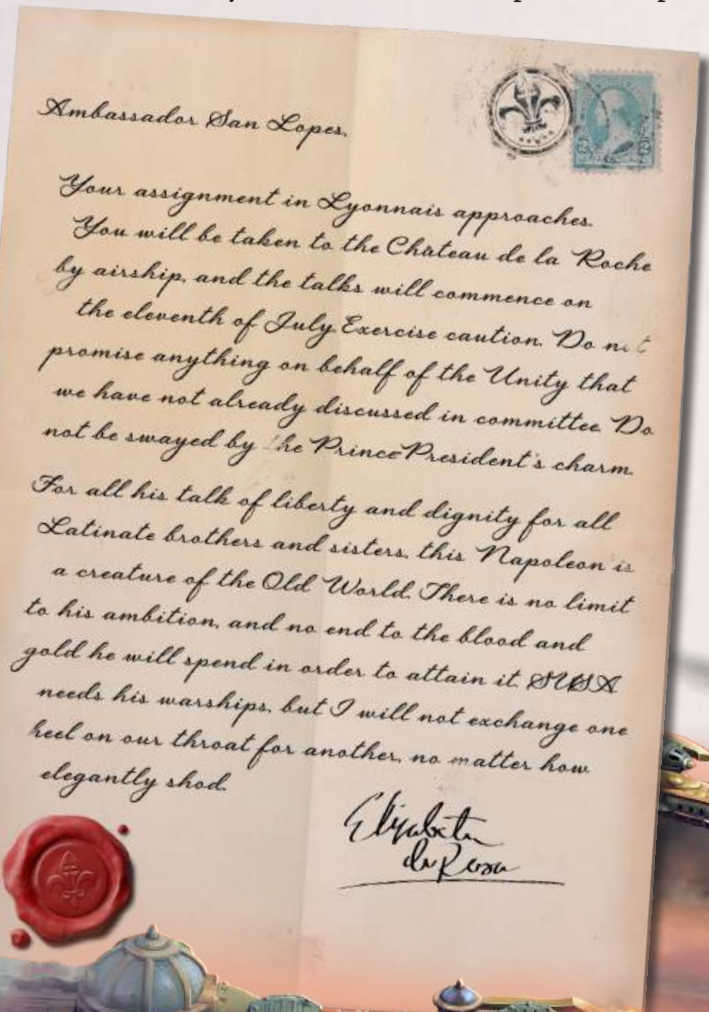 Ambassador San Lopes,
Your assignment in Lyonnais approaches.
You will be taken to the Château de la Roche
by airship, and the talks will commence on
the eleventh of July. Exercise caution. Do not
promise anything on behalf of the Unity that
we have not already discussed in committee. Do
not be swayed by the Prince President's charm.
For all his talk of liberty and dignity for all
Latinate brothers and sisters, this Napoleon is
a creature of the Old World. There is no limit
to his ambition, and no end to the blood and
gold he will spend in order to attain it. SUSA
needs his warships, but I will not exchange one
heel on our throat for another, no matter how
elegantly shod.